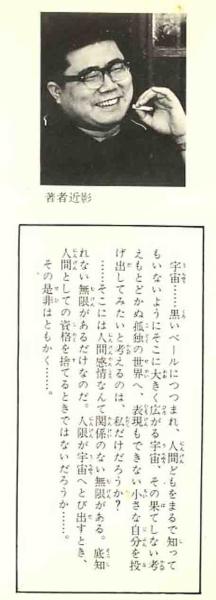 著者近影
宇宙……黒いベールにつつまれ、人間どもをまるで知って
もいないようにそこに大きく広がる宇宙、その果てしない考
えもとどかぬ孤独の世界へ、表現もできない小さな自分を投
げ出してみたいと考えるのは、私だけだろうか?
……そこには人間感情なんて関係のない無限がある。底知
れない無限があるだけなのだ。人限が宇宙へとび出すとき、
人間としての資格を捨てるときではないだろうか……。
その是非はともかく……。